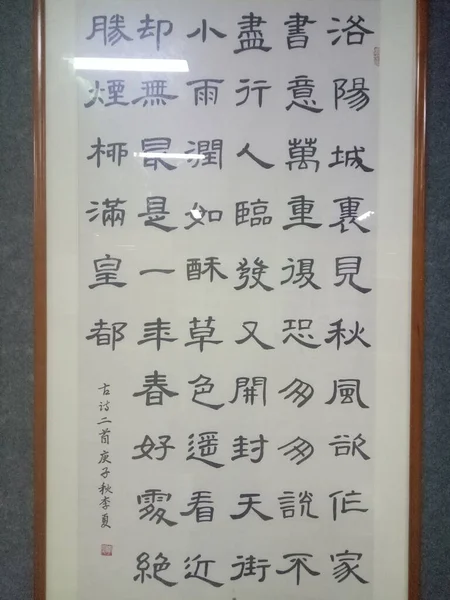 洛陽城裏見秋風欲作家
書意萬重復恐匆匆說不
盡行人臨發又開封天街
小雨潤如酥草色遥看近
却無最是一年春好處絕
勝煙柳滿皇都
古诗二首庚子秋李夏